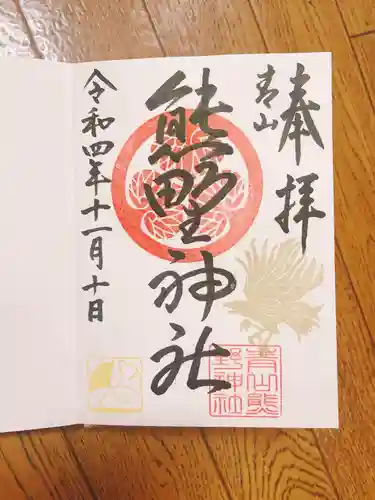 奉拝
青山
熊野神社
令和四年十一月十日
青山熊
野神社